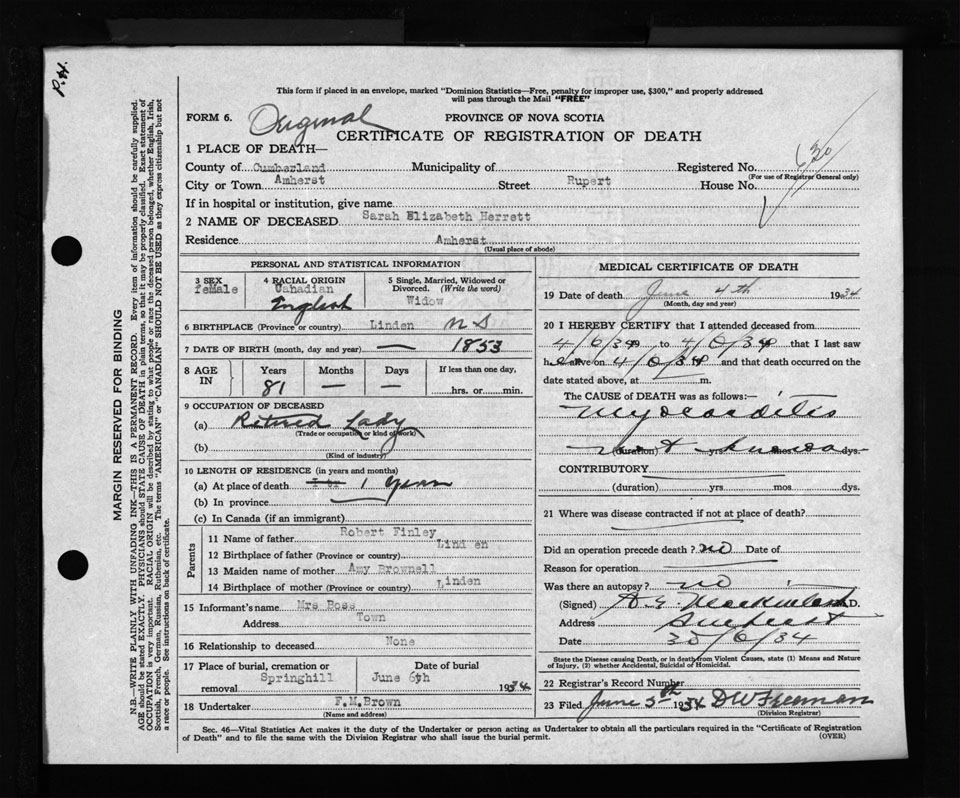 P.H.
This form if placed in an envelope, marked "Dominion Statistics—Free, penalty for improper use, $300," and properly addressed
will pass through the Mail "FREE"
FORM 6. Original PROVINCE OF NOVA SCOTIA
CERTIFICATE OF REGISTRATION OF DEATH
630
1 PLACE OF DEATH—
County of Cumberland Municipality of Registered No.
(For use of Registrar General only)
City or Town Amherst Street Rupert House No.
If in hospital or institution, give name
2 NAME OF DECEASED Sarah Elizabeth Herrett
Residence Amherst
(Usual place of abode)
PERSONAL AND STATISTICAL INFORMATION
3 SEX female
4 RACIAL ORIGIN Canadian
English
5 Single, Married, Widowed or
Divorced. (Write the word)
Widow
6 BIRTHPLACE (Province or country) Linden N S
7 DATE OF BIRTH (month, day and year) — 1853
8 AGE IN
Years Months Days If less than one day,
81 — — hrs. or min.
9 OCCUPATION OF DECEASED
(a) Retired Lady
(Trade or occupation or kind of work)
(b)
(Kind of industry)
10 LENGTH OF RESIDENCE (in years and months)
(a) At place of death 1 year
(b) In province
(c) In Canada (if an immigrant)
Parents
11 Name of father Robert Finley
12 Birthplace of father (Province or country) Linden
13 Maiden name of mother Amy Brownell
14 Birthplace of mother (Province or country) Linden
15 Informant's name Mrs Ross
Address Town
16 Relationship to deceased None
17 Place of burial, cremation or
removal Springhill
Date of burial
June 6th 1934
18 Undertaker F.M.Brown
(Name and address)
MEDICAL CERTIFICATE OF DEATH
19 Date of death June 4th 1934
(Month, day and year)
20 I HEREBY CERTIFY that I attended deceased from
4/6/34 to 4/6/34 that I last saw
her alive on 4/6/34 and that death occurred on the
date stated above, at m.
The CAUSE of DEATH was as follows:—
Myocarditis
not known
(duration) yrs. mos. dys.
CONTRIBUTORY
(duration) yrs. mos. dys.
21 Where was disease contracted if not at place of death?
Did an operation precede death? no Date of
Reason for operation
Was there an autopsy? no
(Signed) M.D.
Address Amherst
Date /6/34
State the Disease causing Death, or in death from Violent Causes, state (1) Means and Nature
of Injury, (2) whether Accidental, Suicidal of Homicidal.
22 Registrar's Record Number
23 Filed June 5th 1934 D W Freeman
(Division Registrar)
Sec. 46—Vital Statistics Act makes it the duty of the Undertaker or person acting as Undertaker to obtain all the particulars required in the "Certificate of Registration
of Death" and to file the same with the Division Registrar who shall issue the burial permit.
(OVER)
MARGIN RESERVED FOR BINDING
N.B.—WRITE PLAINLY WITH UNFADING INK—THIS IS A PERMANENT RECORD. Every item of information should be carefully supplied.
AGE should be stated EXACTLY. PHYSICIANS should STATE CAUSE OF DEATH in plain terms, so that it may be properly classified. Exact statement of
OCCUPATION is very important. RACIAL ORIGIN will be described by stating to what people or race the deceased person belonged, whether English, Irish,
Scottish, French, German, Russian, Ruthenian, etc. The terms "AMERICAN" or "CANADIAN" SHOULD NOT BE USED as they express citizenship but not
a race or people. See instructions on back of certificate.